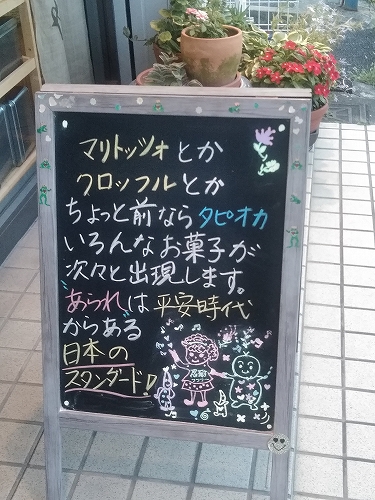 マリトッツォとか
クロッフルとか
ちょっと前なら タピオカ
いろんなお菓子が
次々と出現します。
"あられ"は平安時代
からある
日本の
スタンダード!